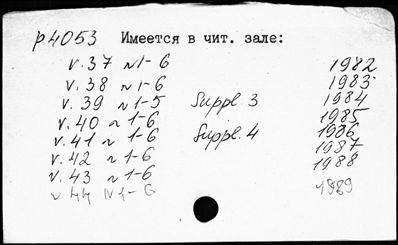 p4053 Имеется в чит. зале:
v. 37 N1-6 1982
v. 38 N1-6 1983
v. 39 N1-5 Suppl. 3 1984
v. 40 N1-6 1985
v. 41 N1-6 Suppl. 4 1986
v. 42 N1-6 1987
v. 43 N1-6 1988
v. 44 N1-6 1989